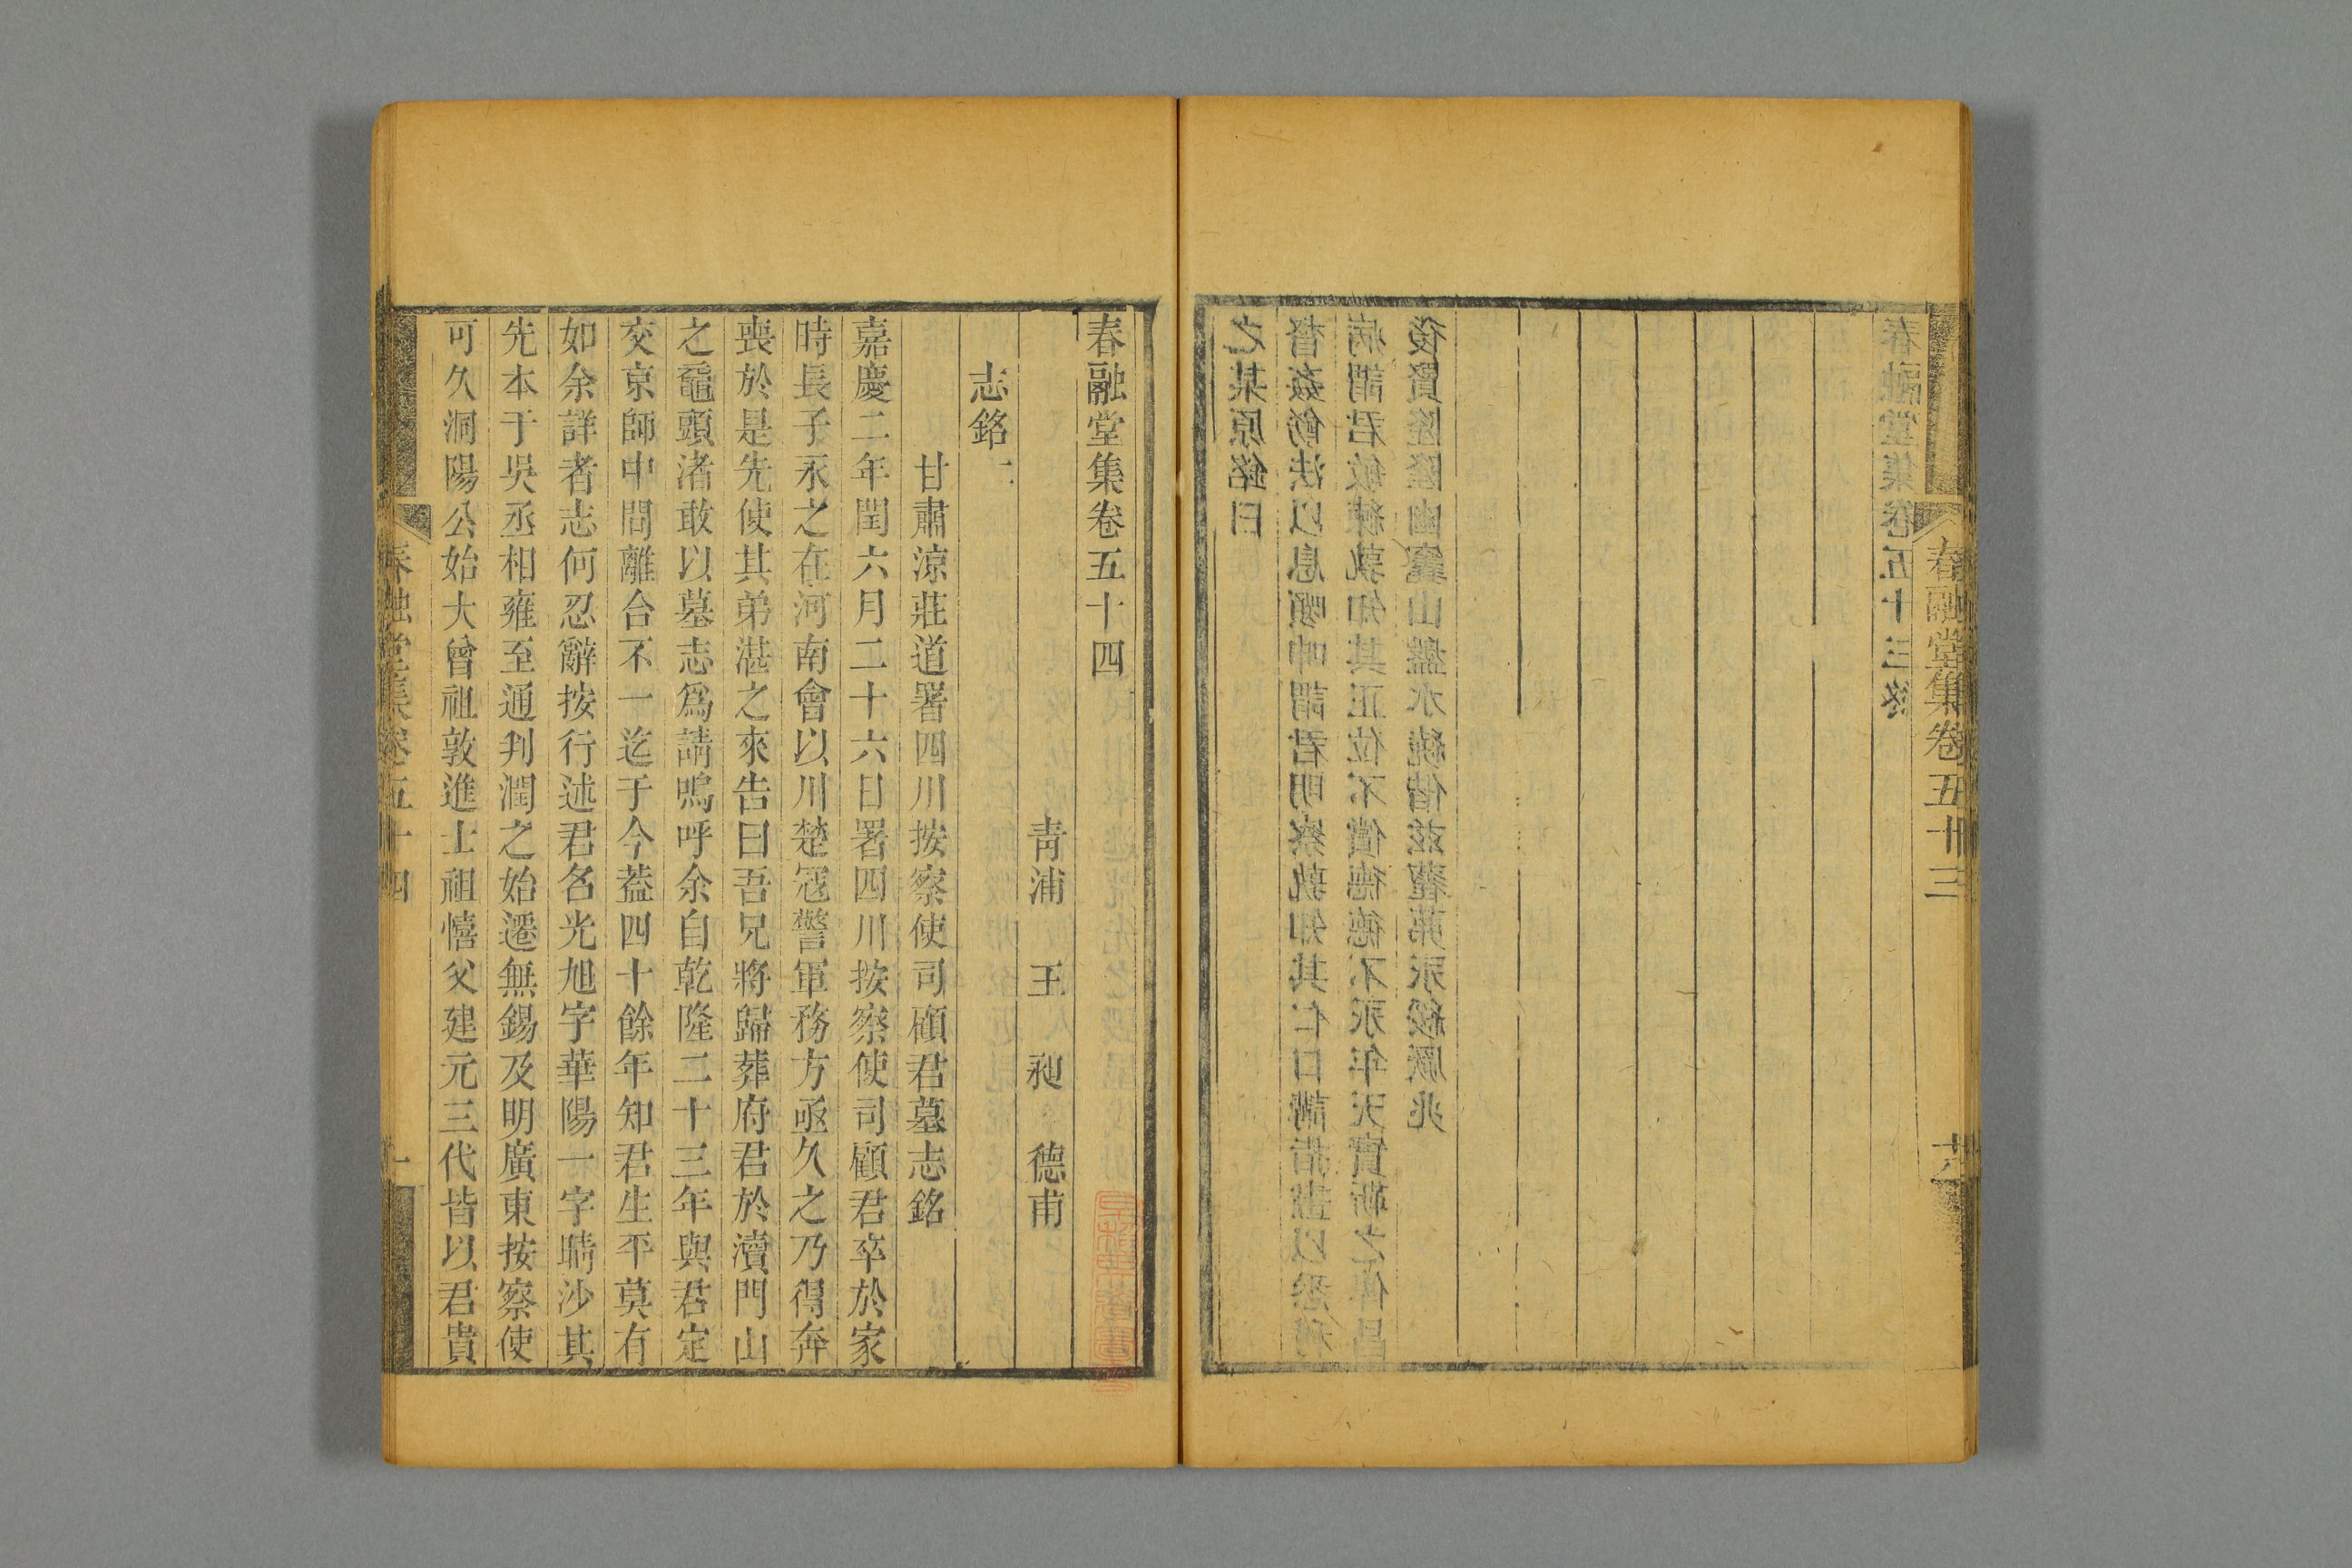 春融堂集卷五十三
之某原銘曰
督姦飭法以息嚬呻謂君明察孰知其仁口講指畫以
病謂君敏練孰知其正位不償德德不永年天實靳之俾昌
後賢隆隆幽竁山盤水繞偕茲永綏厥兆
春融堂集卷五十三終
春融堂集卷五十四
青浦 王 昶 德甫
志銘二
甘肅涼莊道署四川按察使司顧君墓志銘
嘉慶二年閏六月二十六日署四川按察使司顧君卒於家
時長子永之在河南會以川楚寇警軍務方亟久之乃得奔
喪於是先使其弟湛之來告曰吾兄將歸葬府君於瀆門山
之黿頭渚敢以墓志爲請嗚呼余自乾隆二十三年與君定
交京師中間離合不一迄于今葢四十餘年知君生平莫有
如余詳者志何忍辭按行述君名光旭字華陽一字晴沙其
先本于吳丞相雍至通判潤之始遷無錫及明廣東按察使
可久洞陽公始大曾祖敦進士祖憘父建元三代皆以君貴
春融堂集卷五十四
一